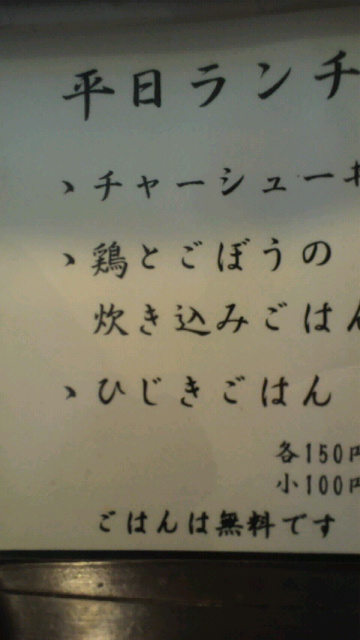 平日ランチ
、チャーシュー
、鶏とごぼうの
炊き込みごはん
、ひじきごはん
各150円
小100円
ごはんは無料です